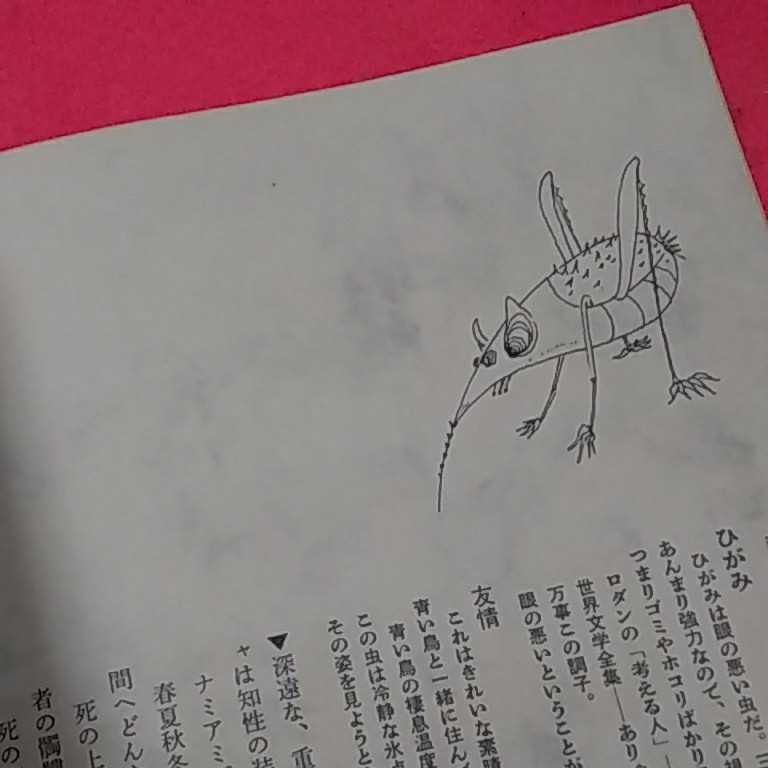 ひがみ
ひがみは眼の悪い虫だ。
あんまり強力なので、その
つまりゴミやホコリばかり
ロダンの「考える人」—
世界文学全集——あり
万事この調子。
眼の悪いということが
友情
これはきれいな素晴
青い鳥と一緒に住ん
青い鳥の棲息温度
この虫は冷静な氷
その姿を見ようと
▼深遠な、重
ャは知性の装
ナミアミ
春夏秋冬
間へどん
死の上
者の髑髏
死の